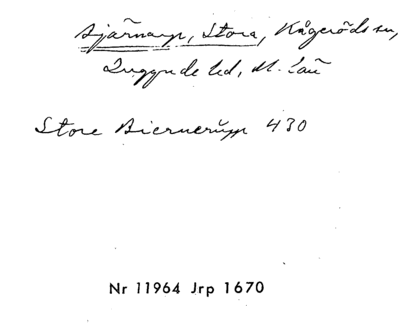 Bjärnarp, Stora, Kågeröds sn,
Luggude hd, M. län
Store Biernerŭp 430
Nr 11964 Jrp 1670